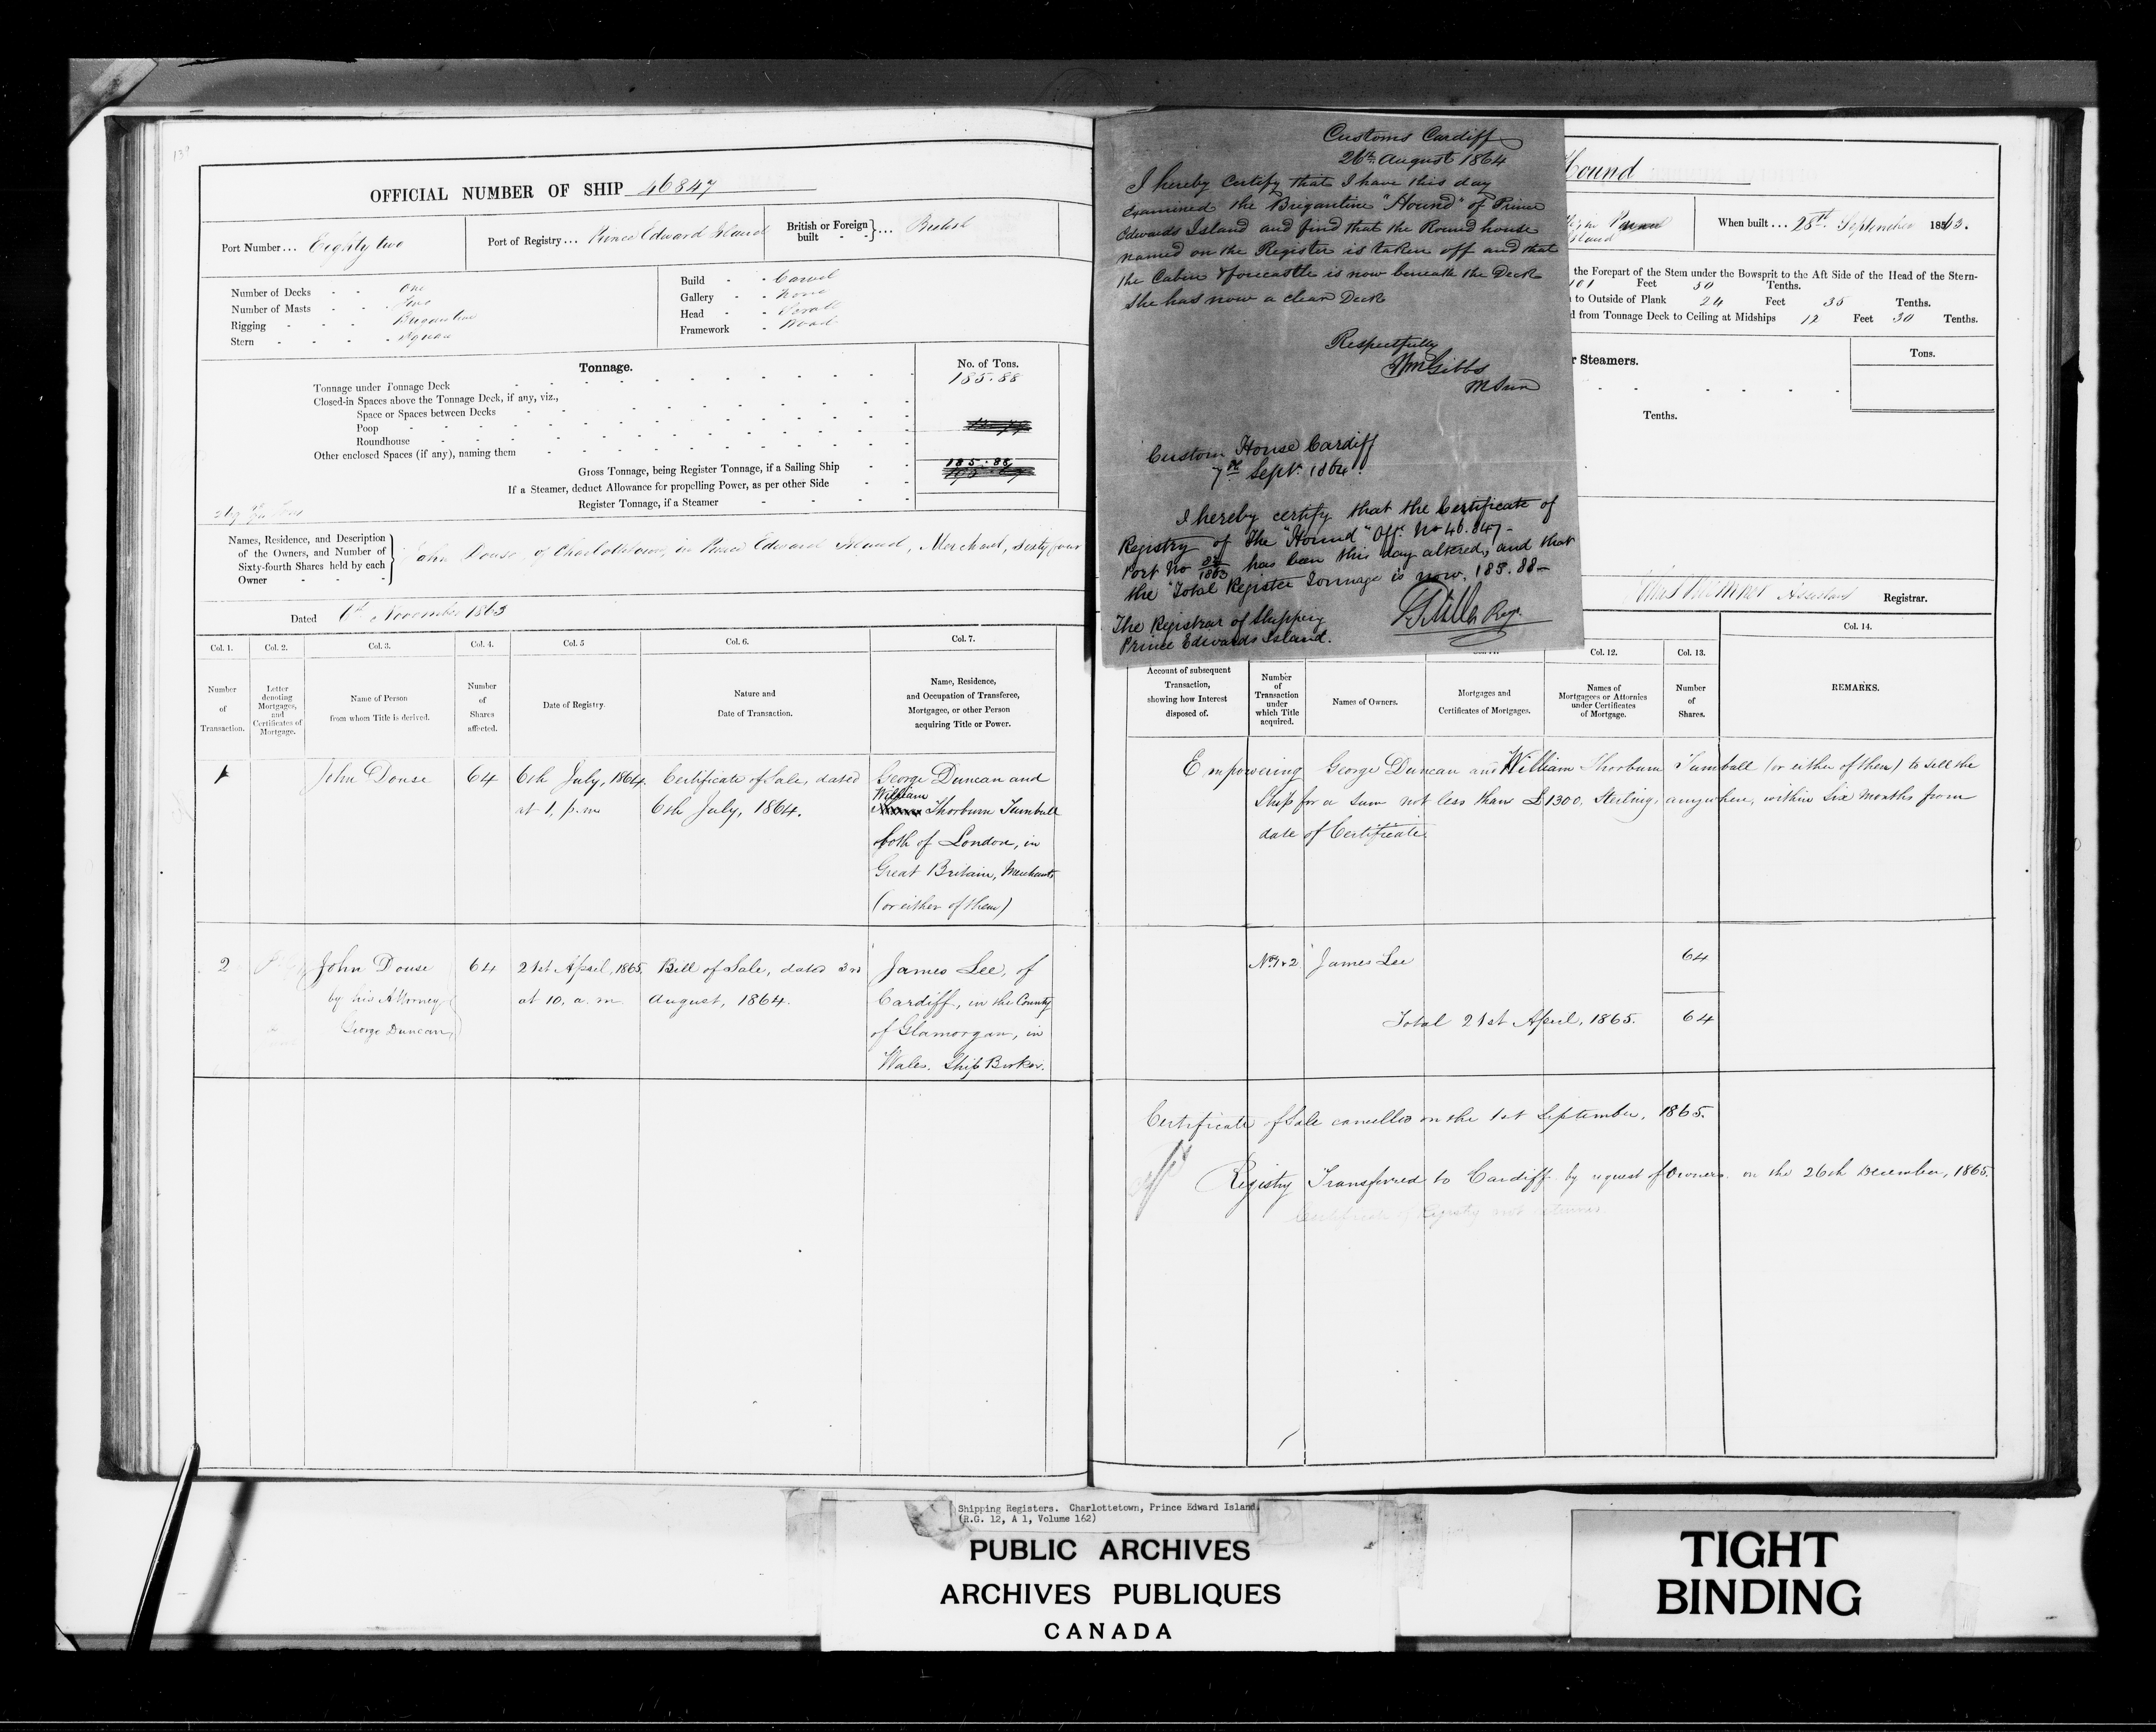 OFFICIAL NUMBER OF SHIP 46847
Port Number... Eighty two
Port of Registry... Prince Edward Island
British or Foreign built - - }... British
Number of Decks - - One
Number of Masts - - Two
Rigging - - - Brigantine
Stern - - - - Square
Build - - Carvel
Gallery - - None
Head - - Scroll
Framework - Wood
Tonnage.
No. of Tons.
Tonnage under Tonnage Deck 185.88
Closed-in Spaces above the Tonnage Deck, if any, viz.,
Space or Spaces between Decks
Poop
Roundhouse
Other enclosed Spaces (if any), naming them
Gross Tonnage, being Register Tonnage, if a Sailing Ship 185.88
If a Steamer, deduct Allowance for propelling Power, as per other Side
Register Tonnage, if a Steamer
Names, Residence, and Description
of the Owners, and Number of
Sixty-fourth Shares held by each
Owner - - -
John Douse, of Charlottetown, in Prince Edward Island, Merchant, Sixty four
Dated 6th November 1863
Col. 1. Col. 2. Col. 3. Col. 4. Col. 5 Col. 6. Col. 7.
Number of Transaction.
Letter denoting Mortgages, and Certificates of Mortgage.
Name of Person from whom Title is derived.
Number of Shares affected.
Date of Registry.
Nature and Date of Transaction.
Name, Residence, and Occupation of Transferee, Mortgagee, or other Person acquiring Title or Power.
1 John Douse 64 6th July, 1864. Certificate of Sale, dated George Duncan and
at 1, p.m 6th July, 1864. William Thorburn Turnbull
both of London, in
Great Britain, Merchants
(or either of them)
2 John Douse 64 21st April, 1865. Bill of Sale, dated 3rd James Lee, of
by his Attorney at 10, a.m. August, 1864. Cardiff, in the County
George Duncan of Glamorgan, in
Wales. Ship Broker.
Customs Cardiff
26th August 1864
I hereby certify that I have this day
examined the Brigantine "Hound" of Prince
Edwards Island and find that the Round house
named on the Register is taken off and that
the Cabin & forecastle is now beneath the Deck
She has now a clear Deck
Respectfully
Wm Gibbs
Custom House Cardiff
7th Sept. 1864.
I hereby certify that the Certificate of
Registry of The "Hound" Offl. No 46.847-
Port No 82/1863 has been this day altered, and that
the Total Register Tonnage is now. 185.88-
The Registrar of Shipping
Prince Edwards Island.
Hound
Island
When built... 28th September 1863.
the Forepart of the Stem under the Bowsprit to the Aft Side of the Head of the Stern-
101 Feet 50 Tenths.
to Outside of Plank 24 Feet 35 Tenths.
from Tonnage Deck to Ceiling at Midships 12 Feet 30 Tenths.
r Steamers.
Tons.
Tenths.
Assistant Registrar.
Col. 12. Col. 13. Col. 14.
Account of subsequent Transaction, showing how Interest disposed of.
Number of Transaction under which Title acquired.
Names of Owners.
Mortgages and Certificates of Mortgages.
Names of Mortgagees or Attornies under Certificates of Mortgage.
Number of Shares.
REMARKS.
Empowering George Duncan and William Thorburn Turnball (or either of them) to sell the
Ship for a sum not less than £1300. Sterling, anywhere, within six months from
date of Certificate.
No. 1 & 2 James Lee 64
Total 21st April, 1865. 64
Certificate of Sale cancelled on the 1st September, 1865.
Registry Transferred to Cardiff by request of Owners on the 26th December, 1865.
Certificate of Registry not returned
Shipping Registers. Charlottetown, Prince Edward Island.
(R.G. 12, A 1, Volume 162)
PUBLIC ARCHIVES
ARCHIVES PUBLIQUES
CANADA
TIGHT
BINDING